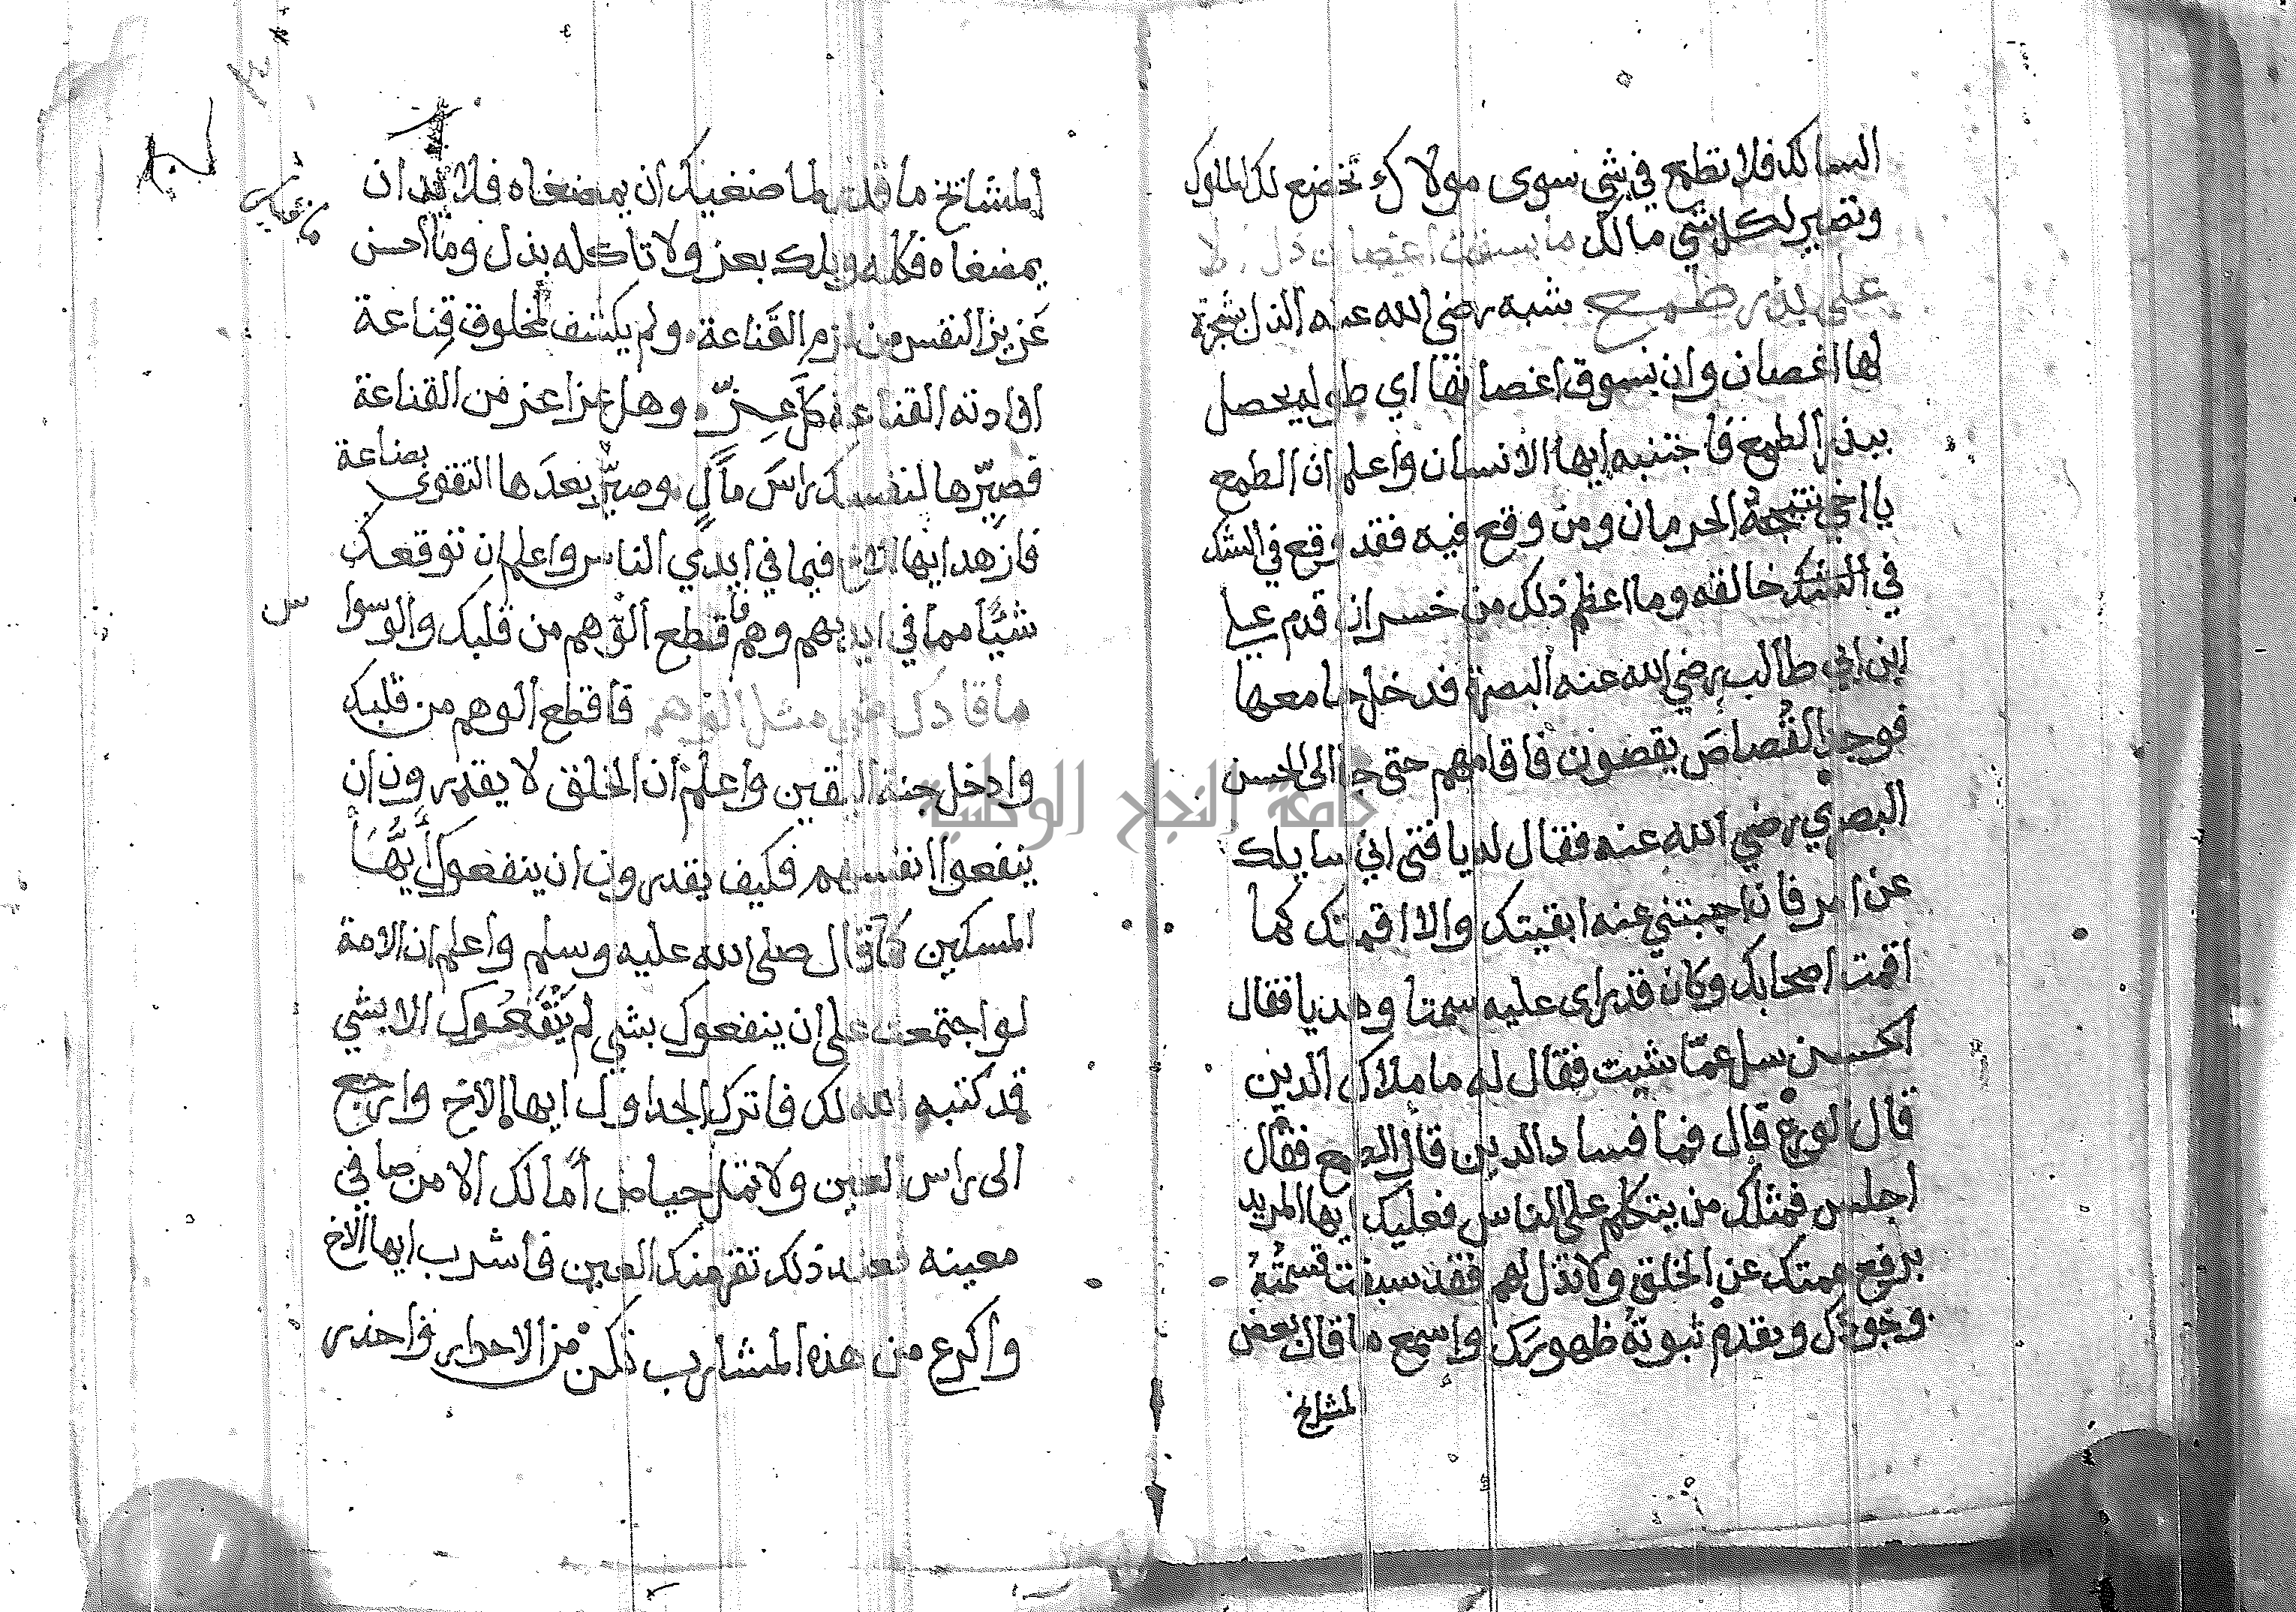 السالك فلا تطمع في شي سوى مولاك تخضع لك الملوك
وتصير لكل شي مالك ما بسقت اغصان ذل الا
على بذر طمع شبه رضي الله عنه الذل بشجرة
لها اغصان وان بسوق اغصانها اي طوله يحصل
ببذر الطمع فاجتنبه ايها الانسان واعلم ان الطمع
يا اخي نتيجة الحرمان ومن وقع فيه فقد وقع في الشك
في الشك خالقه وما اعظم ذلك من خسران قدم علي
ابن ابي طالب رضي الله عنه البصرة فدخل جامعها
فوجد القُصاصَ يقصون فاقامهم حتى جا الى الحسن
البصري رضي الله عنه فقال له يا فتى اني سايلك
عن امر فان اجبتني عنه ابقيتك والا اقمتك كما
اقمت اصحابك وكان قد راى عليه سمتا وهديا فقال
الحسن سل عمّا شيت فقال له ما ملاك الدين
قال الورع قال فما فساد الدين قال الطمع فقال
اجلس فمثلك من يتكلم على الناس فعليك ايها المريد
برفع همتك عن الخلق ولا تذل لهم فقد سبقت قسمتُهُ
وجودك وتقدم ثبوته ظهورك واسمع ما قال بعض
لمشايخ
المشايخ ما قدر لما ضغيك ان يمضغاه فلا بد ان
يمضغاه فكله ويلك بعز ولا تاكله بذل وما احسن
عزيز النفس من لزم القناعة ولم يكشف لمخلوق قناعة
افادته القناعة كل عزّ وهل عز اعز من القناعة
فصيّرها لنفسك راس مال وصيّر بعدها التقوى بضاعة
فازهد ايها الاخ فيما في ايدي الناس واعلم ان توقعك
شيًا مما في ايديهم وهم فاقطع الوهم من قلبك والوسوا
س
ما قادك شي مثل الوهم فاقطع الوهم من قلبك
وادخل جنة اليقين واعلم ان الخلق لا يقدرون ان
ينفعوا انفسهم فكيف يقدرون ان ينفعوك أَيُّهَا
المسكين كما قال صلى الله عليه وسلم واعلم ان الامة
لو اجتمعت على ان ينفعوك بشي لم يَنْفَعُوك الا بشي
قد كتبه الله لك فاترك الجداول ايها الاخ وارجع
الى راس العين ولا تمل حياض أمالك الا من صافي
معينه فعند ذلك تقر منك العين فاشرب ايها الاخ
واكرع من هذه المشارب تكن من الاحرار واحذر
جامعة النجاح الوطنية